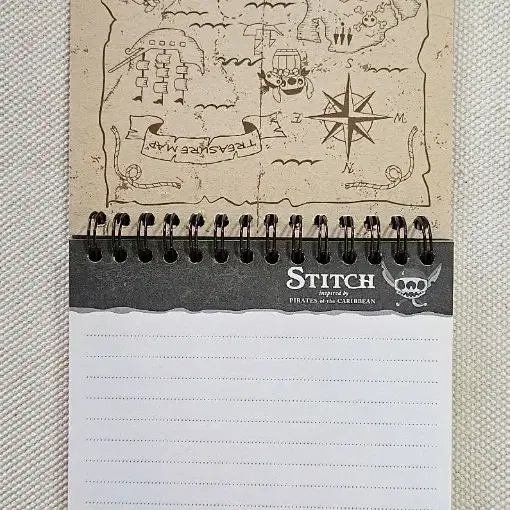 S
E
W
TREASURE MAP
STITCH
inspired by
PIRATES of the CARIBBEAN